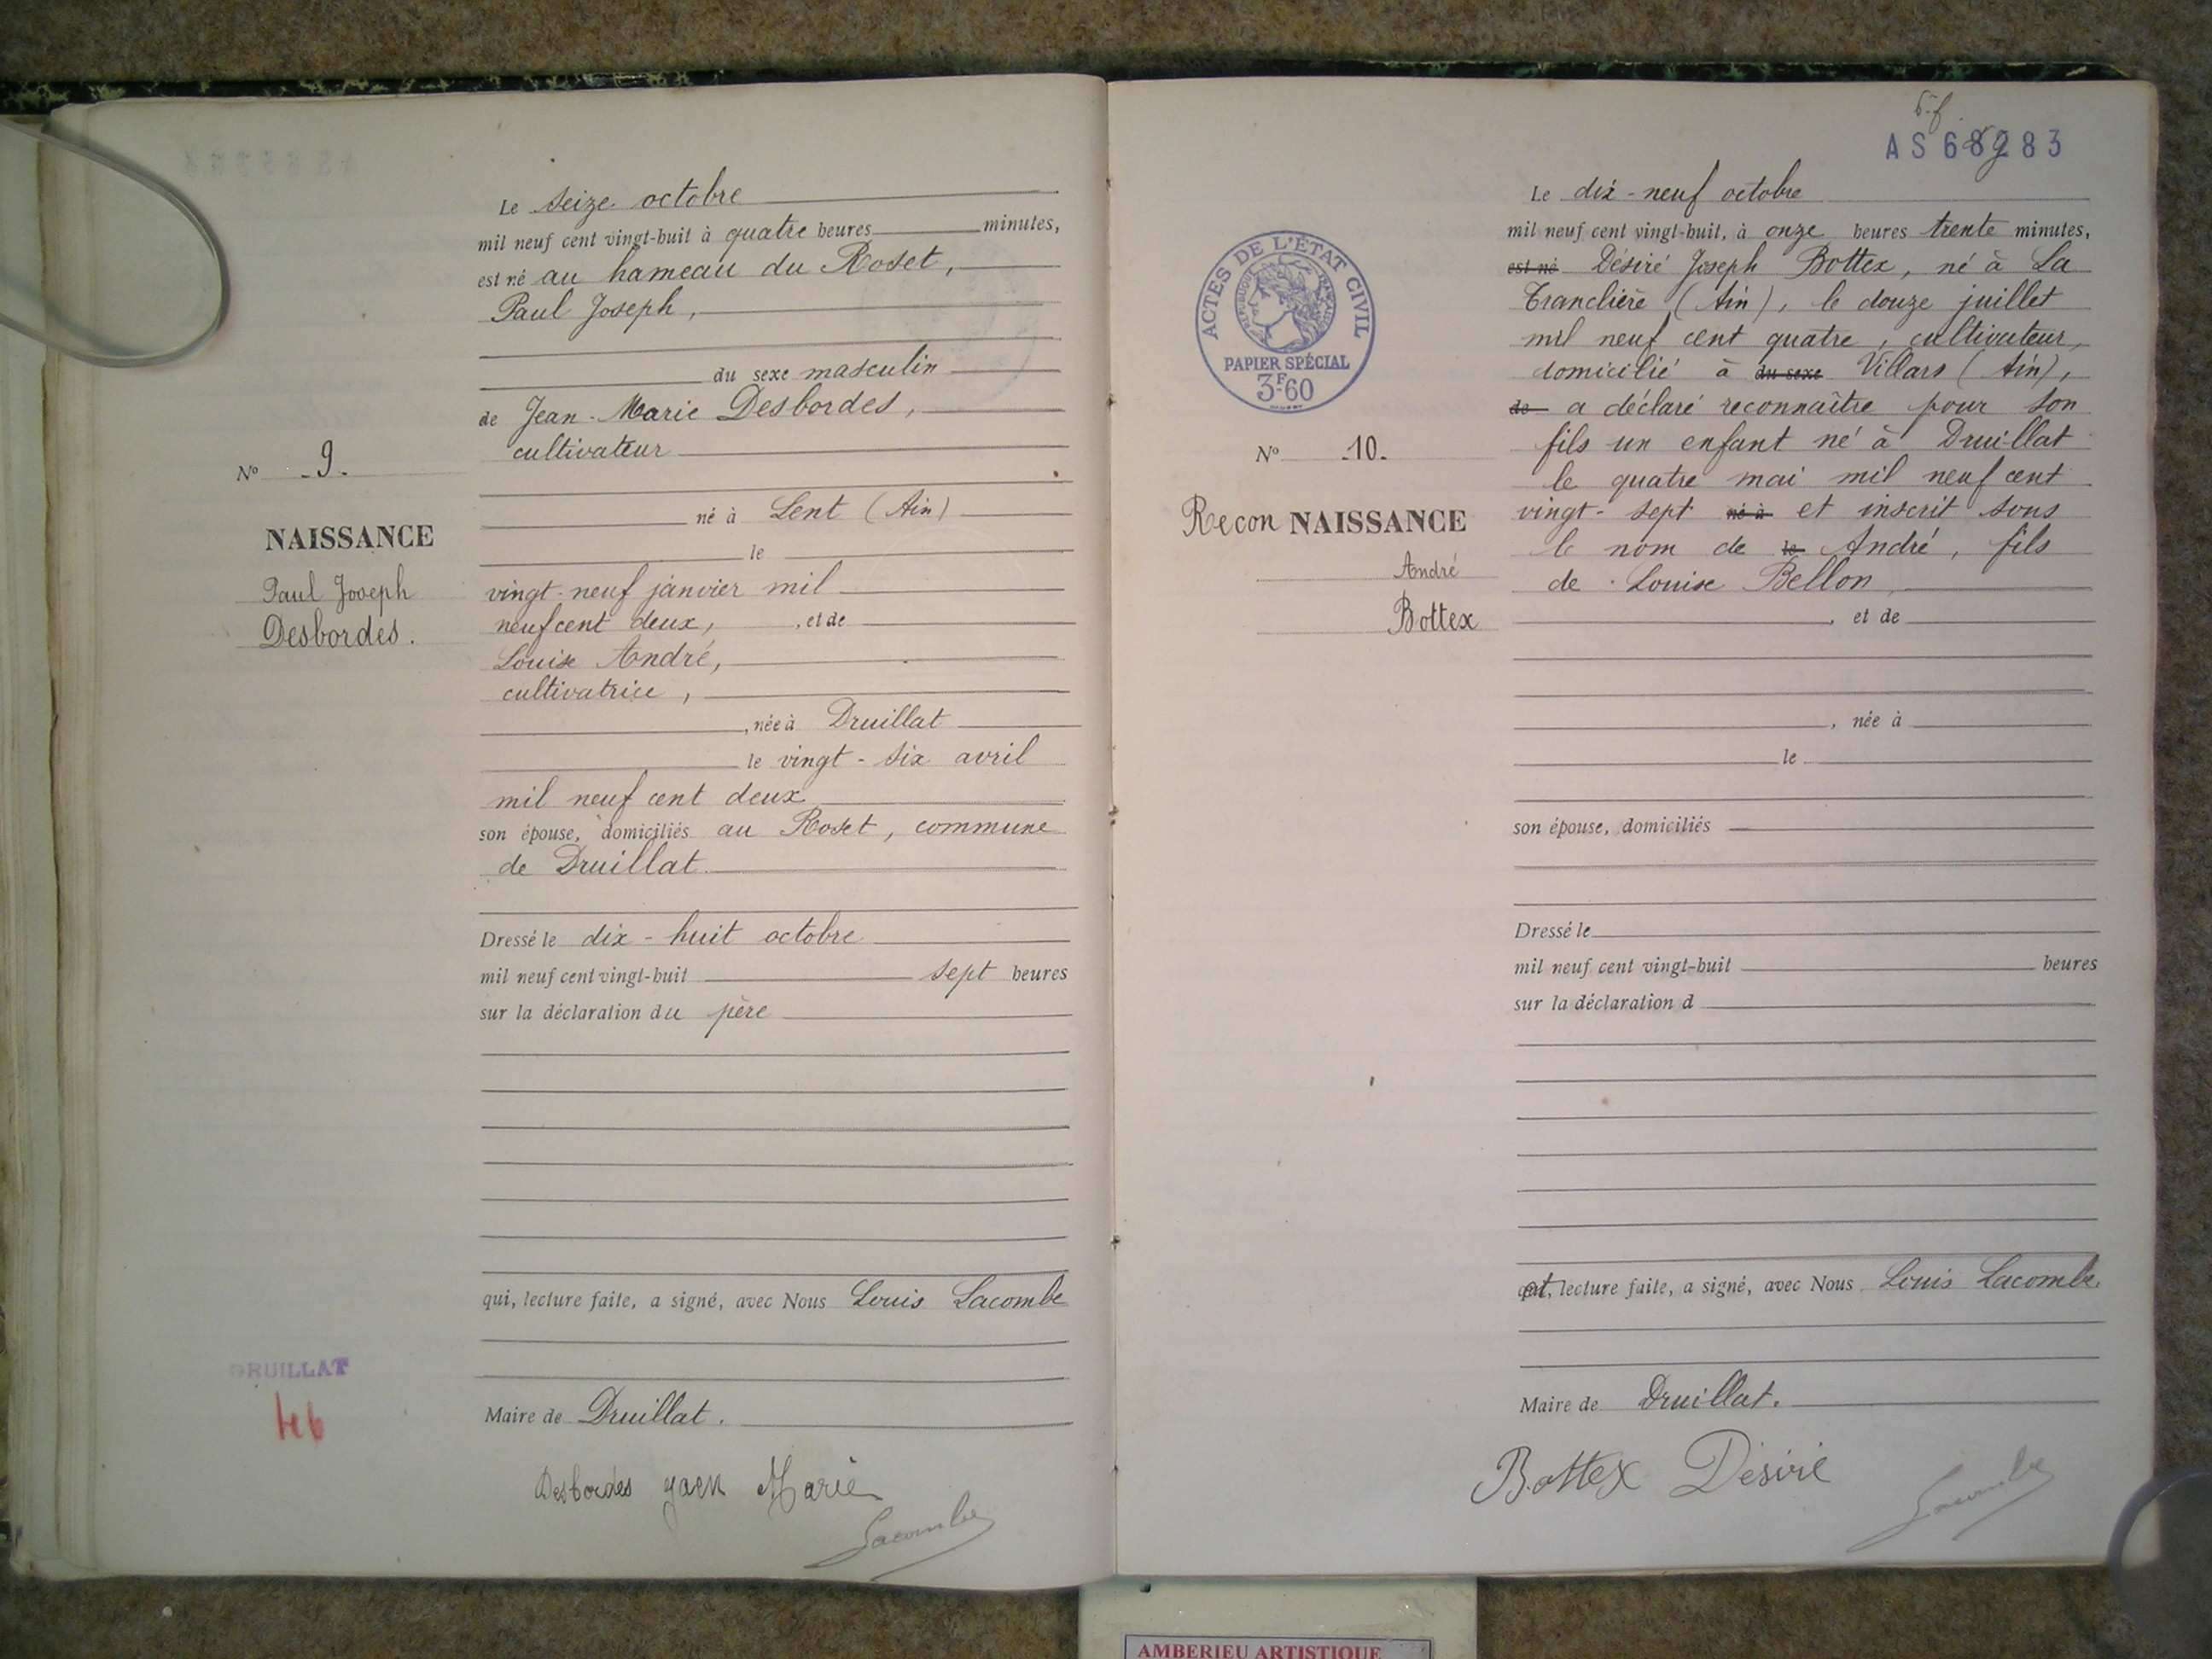 Le seize octobre
mil neuf cent vingt-huit à quatre heures minutes,
est né au hameau du Roset,
Paul Joseph,
du sexe masculin
de Jean-Marie Desbordes,
cultivateur
Nº 9.
né à Lent (Ain)
NAISSANCE
le
Paul Joseph
Desbordes.
vingt-neuf janvier mil
neuf cent deux, , et de
Louise André,
cultivatrice,
, née à Druillat
le vingt-six avril
mil neuf cent deux
son épouse, domiciliés au Roset, commune
de Druillat
Dressé le dix-huit octobre
mil neuf cent vingt-huit sept heures
sur la déclaration du père
qui, lecture faite, a signé, avec Nous Louis Lacombe
DRUILLAT
46
Maire de Druillat.
Desbordes jaen Marie
Lacombe
AS 68283
ACTES DE L'ÉTAT CIVIL
PAPIER SPÉCIAL
3F60
Le dix-neuf octobre
mil neuf cent vingt-huit, à onze heures trente minutes,
est né Désiré Joseph Bottex, né à La
Tranclière (Ain), le douze juillet
mil neuf cent quatre, cultivateur,
domicilié à du sexe Villars (Ain),
de a déclaré reconnaître pour son
fils un enfant né à Druillat
le quatre mai mil neuf cent
vingt-sept né à et inscrit sous
le nom de le André, fils
de Louise Bellon,
Nº 10.
Recon NAISSANCE
André
Bottex
, et de
, née à
le
son épouse, domiciliés
Dressé le
mil neuf cent vingt-huit heures
sur la déclaration d
et, lecture faite, a signé, avec Nous Louis Lacombe.
Maire de Druillat.
Bottex Désiré
Lacombe
AMBERIEU ARTISTIQUE